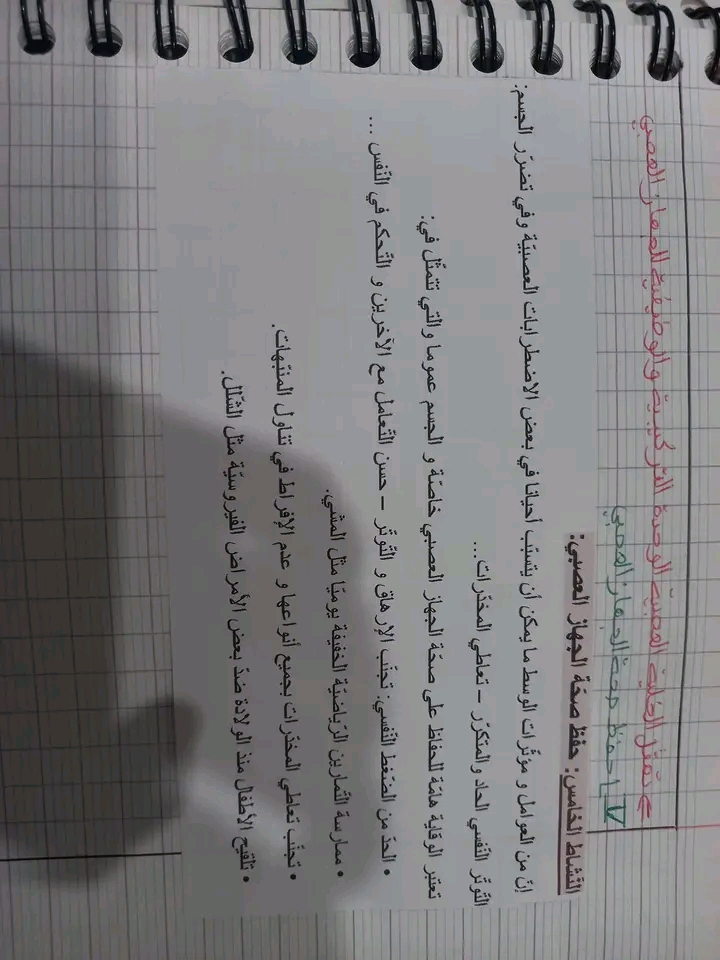 ⇐ تمثل الخلية العصبية الوحدة التركيبية والوظيفية للجهاز العصبي
V_ حفظ صحة الجهاز العصبي
النّشاط الخامس: حفظ صحّة الجهاز العصبي:
إنّ من العوامل و مؤثّرات الوسط ما يمكن أن يتسبّب أحيانا في بعض الاضطرابات العصبيّة وفي تضرّر الجسم:
التّوتّر النّفسي الحاد والمتكرّر – تعاطي المخدّرات...
تعتبر الوقاية هامّة للحفاظ على صحّة الجهاز العصبي خاصّة و الجسم عموما والتي تتمثّل في:
• الحدّ من الضّغط النّفسي: تجنّب الإرهاق و التّوتّر – حسن التّعامل مع الآخرين و التّحكم في النّفس ...
• ممارسة التّمارين الرّياضيّة الخفيفة يوميّا مثل المشي.
• تجنّب تعاطي المخدّرات بجميع أنواعها و عدم الإفراط في تناول المنبّهات.
• تلقيح الأطفال منذ الولادة ضدّ بعض الأمراض الفيروسيّة مثل الشّلل.